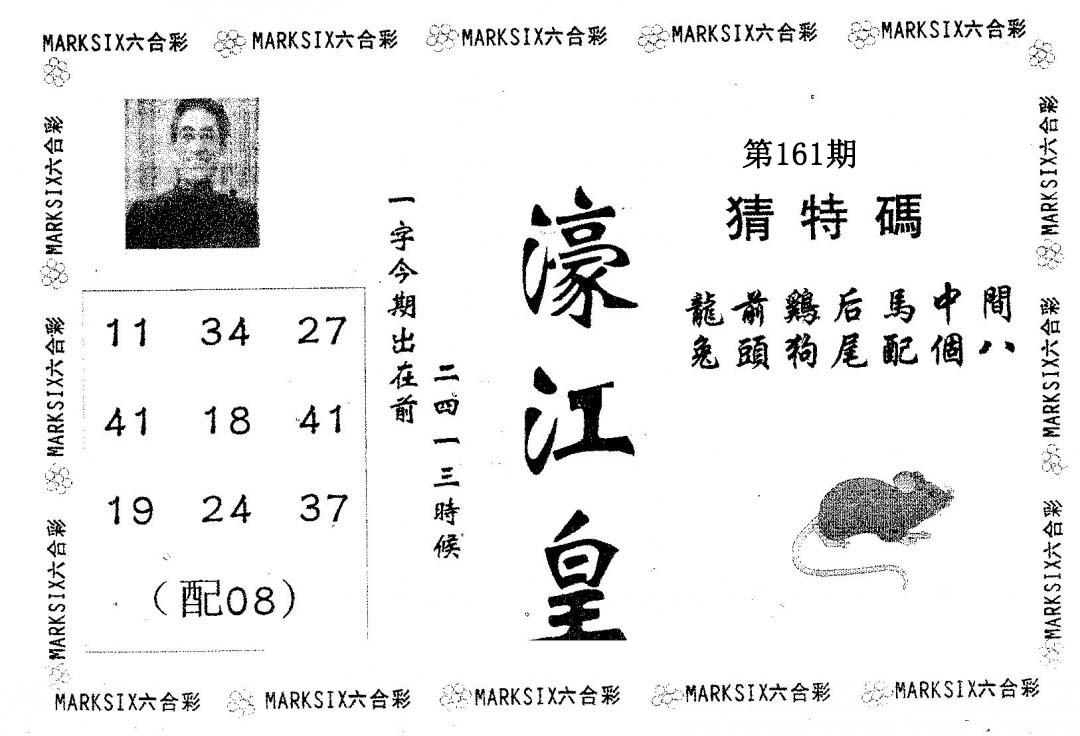 MARKSIX六合彩 MARKSIX六合彩 MARKSIX六合彩 MARKSIX六合彩 MARKSIX六合彩
MARKSIX六合彩
MARKSIX六合彩
MARKSIX六合彩
第161期
猜特碼
龍前鷄后馬中間
兔頭狗尾配個八
濠江皇
一字今期出在前
二四一三時候
11 34 27
41 18 41
19 24 37
(配08)
MARKSIX六合彩
MARKSIX六合彩
MARKSIX六合彩
MARKSIX六合彩 MARKSIX六合彩 MARKSIX六合彩 MARKSIX六合彩 MARKSIX六合彩